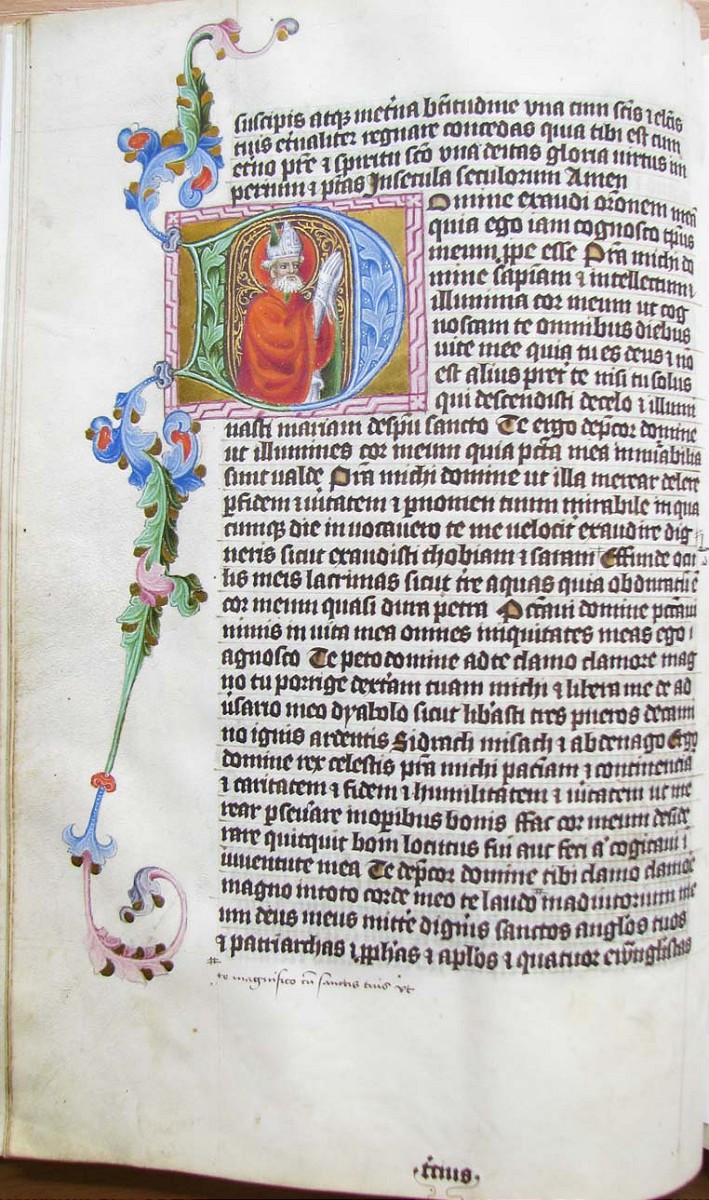 suscipis atqz met'na b'titudine vna cum sc'is ⁊ el'cis
tuis et'naliter regnare concedas quia tibi est cum
et'no pr'e ⁊ spiritu sc'o vna deitas gloria virtus im
perium ⁊ p'tas Insecula seculorum Amen
Domine exaudi or'onem meā
quia ego iam cognosco tp'us
meum ꝓpe esse Pr'a michi do
mine sapiam ⁊ intellectum
illumina cor meum ut cog
noscam te omnibus diebus
vite mee quia tu es deus ⁊ nō
est alius pret' te nisi tu solus
qui descendisti decelo ⁊ illumi
nasti mariam despū sancto Te ergo dep'cor domine
ut illumines cor meum quia pc'ta mea inmabilia
sunt valde Pr'a michi domine ut illa merear delere
ꝑ fidem ⁊ v'itatem ⁊ ꝑ nomen tuum mirabile in qua
cumqz die in uocauero te me velocit' exaudire dig
neris sicut exaudisti thobiam ⁊ saram Effunde ocu
lis meis lacrimas sicut t're aquas quia obduratū ē
cor meum quasi dura petra Pcc'aui domine pcc'aui
nimis in uita mea omnes iniquitates meas ego
agnosco Te peto domine ad te clamo clamore mag
no tu porrige dext'am tuam michi ⁊ libera me de ad
u'sario meo dyabolo sicut lib'asti tres pueros decami
no ignis ardentis Sidrach misach ⁊ abdenago Ergo
domine rex celestis pr'a michi pac'iam ⁊ continencia
⁊ caritatem ⁊ fidem ⁊ humilitatem ⁊ v'itatem ut me
rear ꝑseu'are inop'ibus bonis ffac cor meum deside
rare quitquit boni locutus fui aut feci a' cogitaui ī
iuuentute mea Te dep'cor domine tibi clamo clamoē
magno intoto corde meo te laudo madiutorium me
um deus meus mitt'e dign'is sanctos angl'os tuos
⁊ patriarchas ⁊ ꝓph'as ⁊ apl'os ⁊ quatuor ewāglistas
te magnifico cū sanctis tuis vt
t'cius